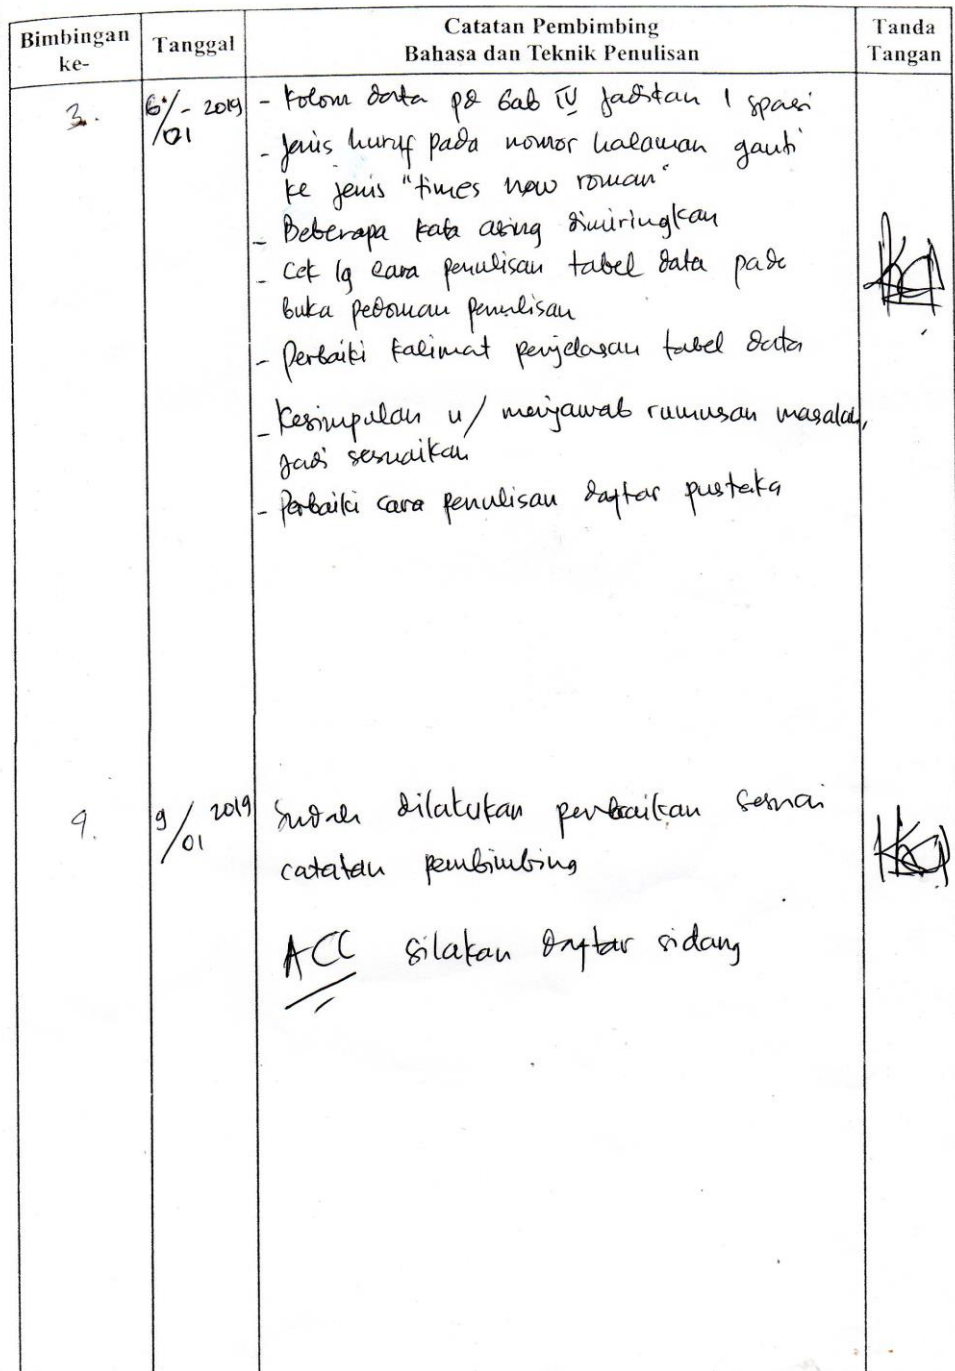 Bimbingan ke-
Tanggal
Catatan Pembimbing
Bahasa dan Teknik Penulisan
Tanda Tangan
3.
6/01 - 2019
- Kolom data pd Bab IV jadikan 1 spasi
- Jenis huruf pada nomor halaman ganti
ke jenis "times new roman"
- Beberapa kata asing dimiringkan
- Cek lg cara penulisan tabel data pada
buka pedoman penulisan
- Perbaiki kalimat penjelasan tabel data
- Kesimpulan u/ menjawab rumusan masalah,
jadi sesuaikan
- Perbaiki cara penulisan daftar pustaka
9/01 2019
Sudah dilakukan perbaikan sesuai
catatan pembimbing
ACC silakan daftar sidang